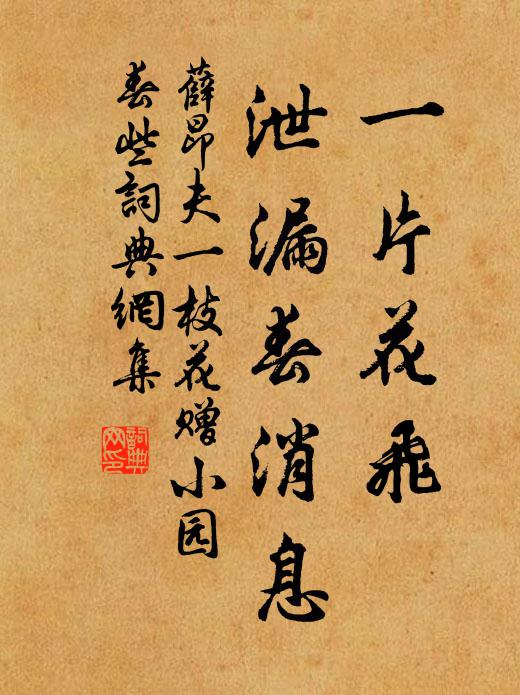 一片花飛
泄漏春消息
薛昂夫一枝花赠小园
春些詞典網集
詞典
网印